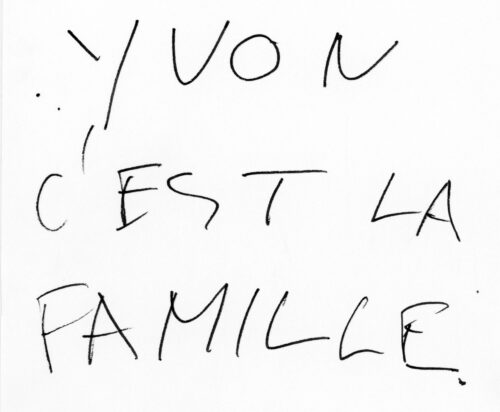 YVON
C'EST LA
FAMILLE.